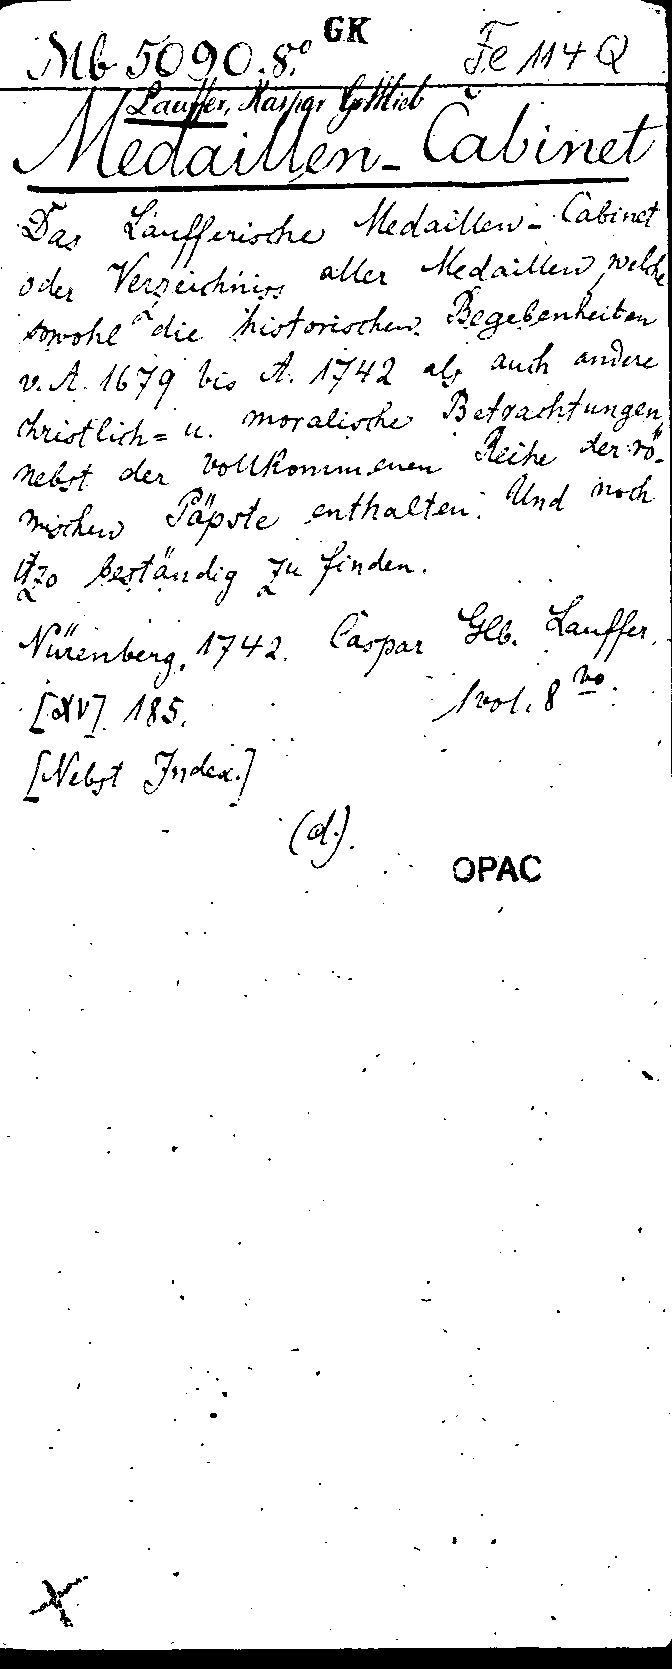 GK
Mb 5090.8.° Fe 114 Q
Lauffer, Kaspar Gottlieb
Medaillen-Cabinet
Das Laufferische Medaillen-Cabinet
oder Verzeichniss aller Medaillen welche
sowohl die historischen Begebenheiten
v. A. 1679 bis A. 1742 als auch andere
christlich= u. moralische Betrachtungen,
nebst der vollkommenen Reihe der rö-
mischen Päpste enthalten. Und noch
itzo beständig zu finden.
Nürenberg, 1742. Caspar Glb. Lauffer.
[XV]. 185. 1 vol. 8 vo.
[Nebst Index.]
(d.).
OPAC